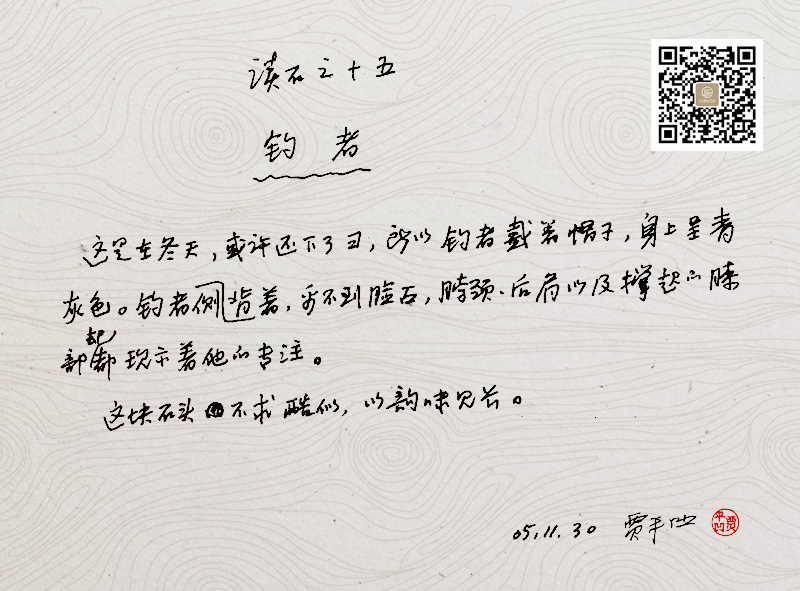 读石之十五
钓者
这是在冬天，或许还下了雨，所以钓者戴着帽子，身上呈青
灰色。钓者侧背着，看不到脸面，脖颈、后肩以及撑起的膝
部却都现示着他的专注。
这块石头不求酷似，以韵味见长。
05.11.30 贾平凹
平凹 贾